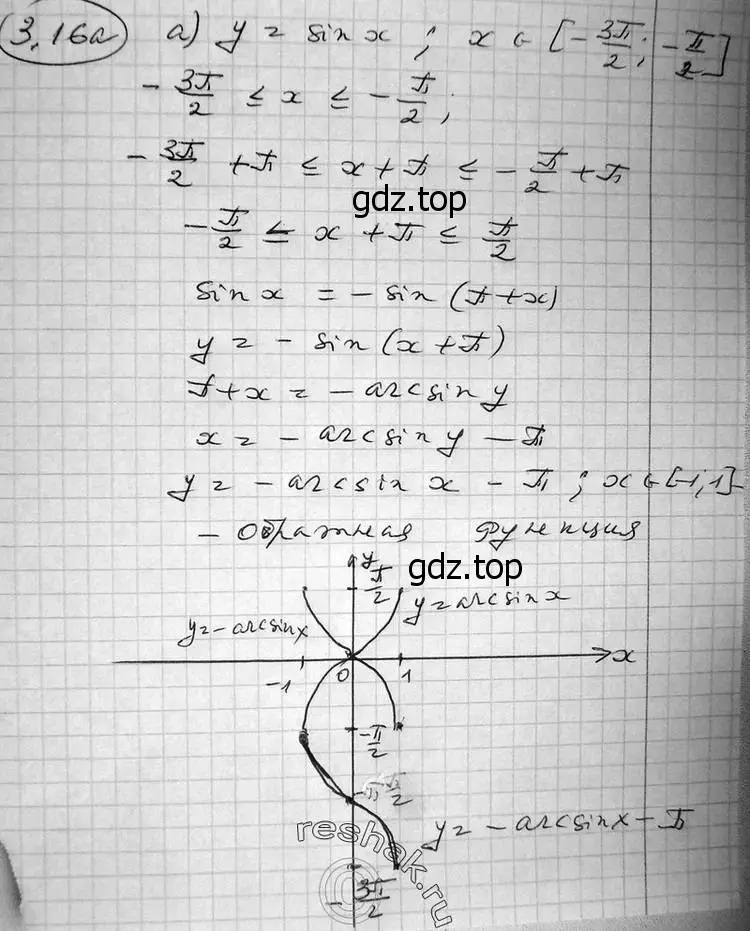 3.16а а) y = sin x ; x ∈ [-3π/2; -π/2]
-3π/2 ≤ x ≤ -π/2;
-3π/2 + π ≤ x + π ≤ -π/2 + π
gdz.top
-π/2 ≤ x + π ≤ π/2
sin x = - sin (π+x)
y = - sin (x+π)
π+x = - arcsin y
x = - arcsin y - π
y = - arcsin x - π ; x ∈ [-1; 1] -
- обратная функция
y
π/2
gdz.top
y = arcsin x
y = - arcsin x
-1 0 1 x
-π/2
-π
y = - arcsin x - π
reshak.ru
-3π/2